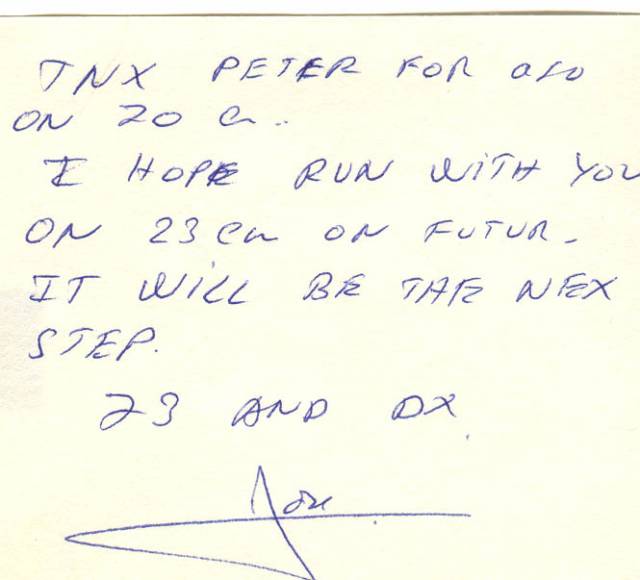 TNX PETER FOR QSO
ON 20 Cm.
I HOPE RUN WITH YOU
ON 23 Cm ON FUTUR.
IT WILL BE THE NEX
STEP.
73 AND DX